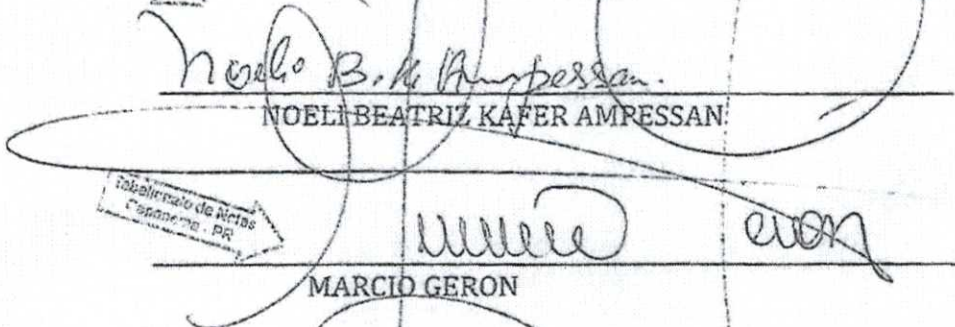 Noeli B. K. Ampessan.
NOELI BEATRIZ KAFER AMPESSAN
Tabelionato de Notas
Capanema - PR
MARCIO GERON